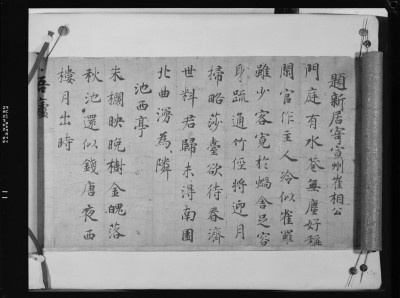 題新居寄宣州崔相公
門庭有水巷無塵好稱
閑官作主人冷似雀羅
雖少客寛於蝸舎足容
身疏通竹徑將迎月
掃略莎臺欲待春濟
世料君歸未得南園
北曲謾為隣
池西亭
朱欄映晚樹金魄落
秋池還似錢唐夜西
樓月出時